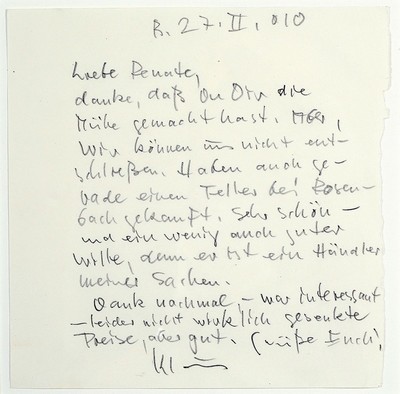 B. 27. II. 010
Liebe Renate,
danke, daß Du Dir die
Mühe gemacht hast. Aber,
wir können uns nicht ent-
schließen. Haben auch ge-
rade einen Teller bei Rosen-
bach gekauft. Sehr schön -
und ein wenig auch guter
Wille, denn er ist ein Händler
meiner Sachen.
Dank nochmal, - war interessant
- leider nicht wirklich gesenkte
Preise, aber gut. Grüße Euch,